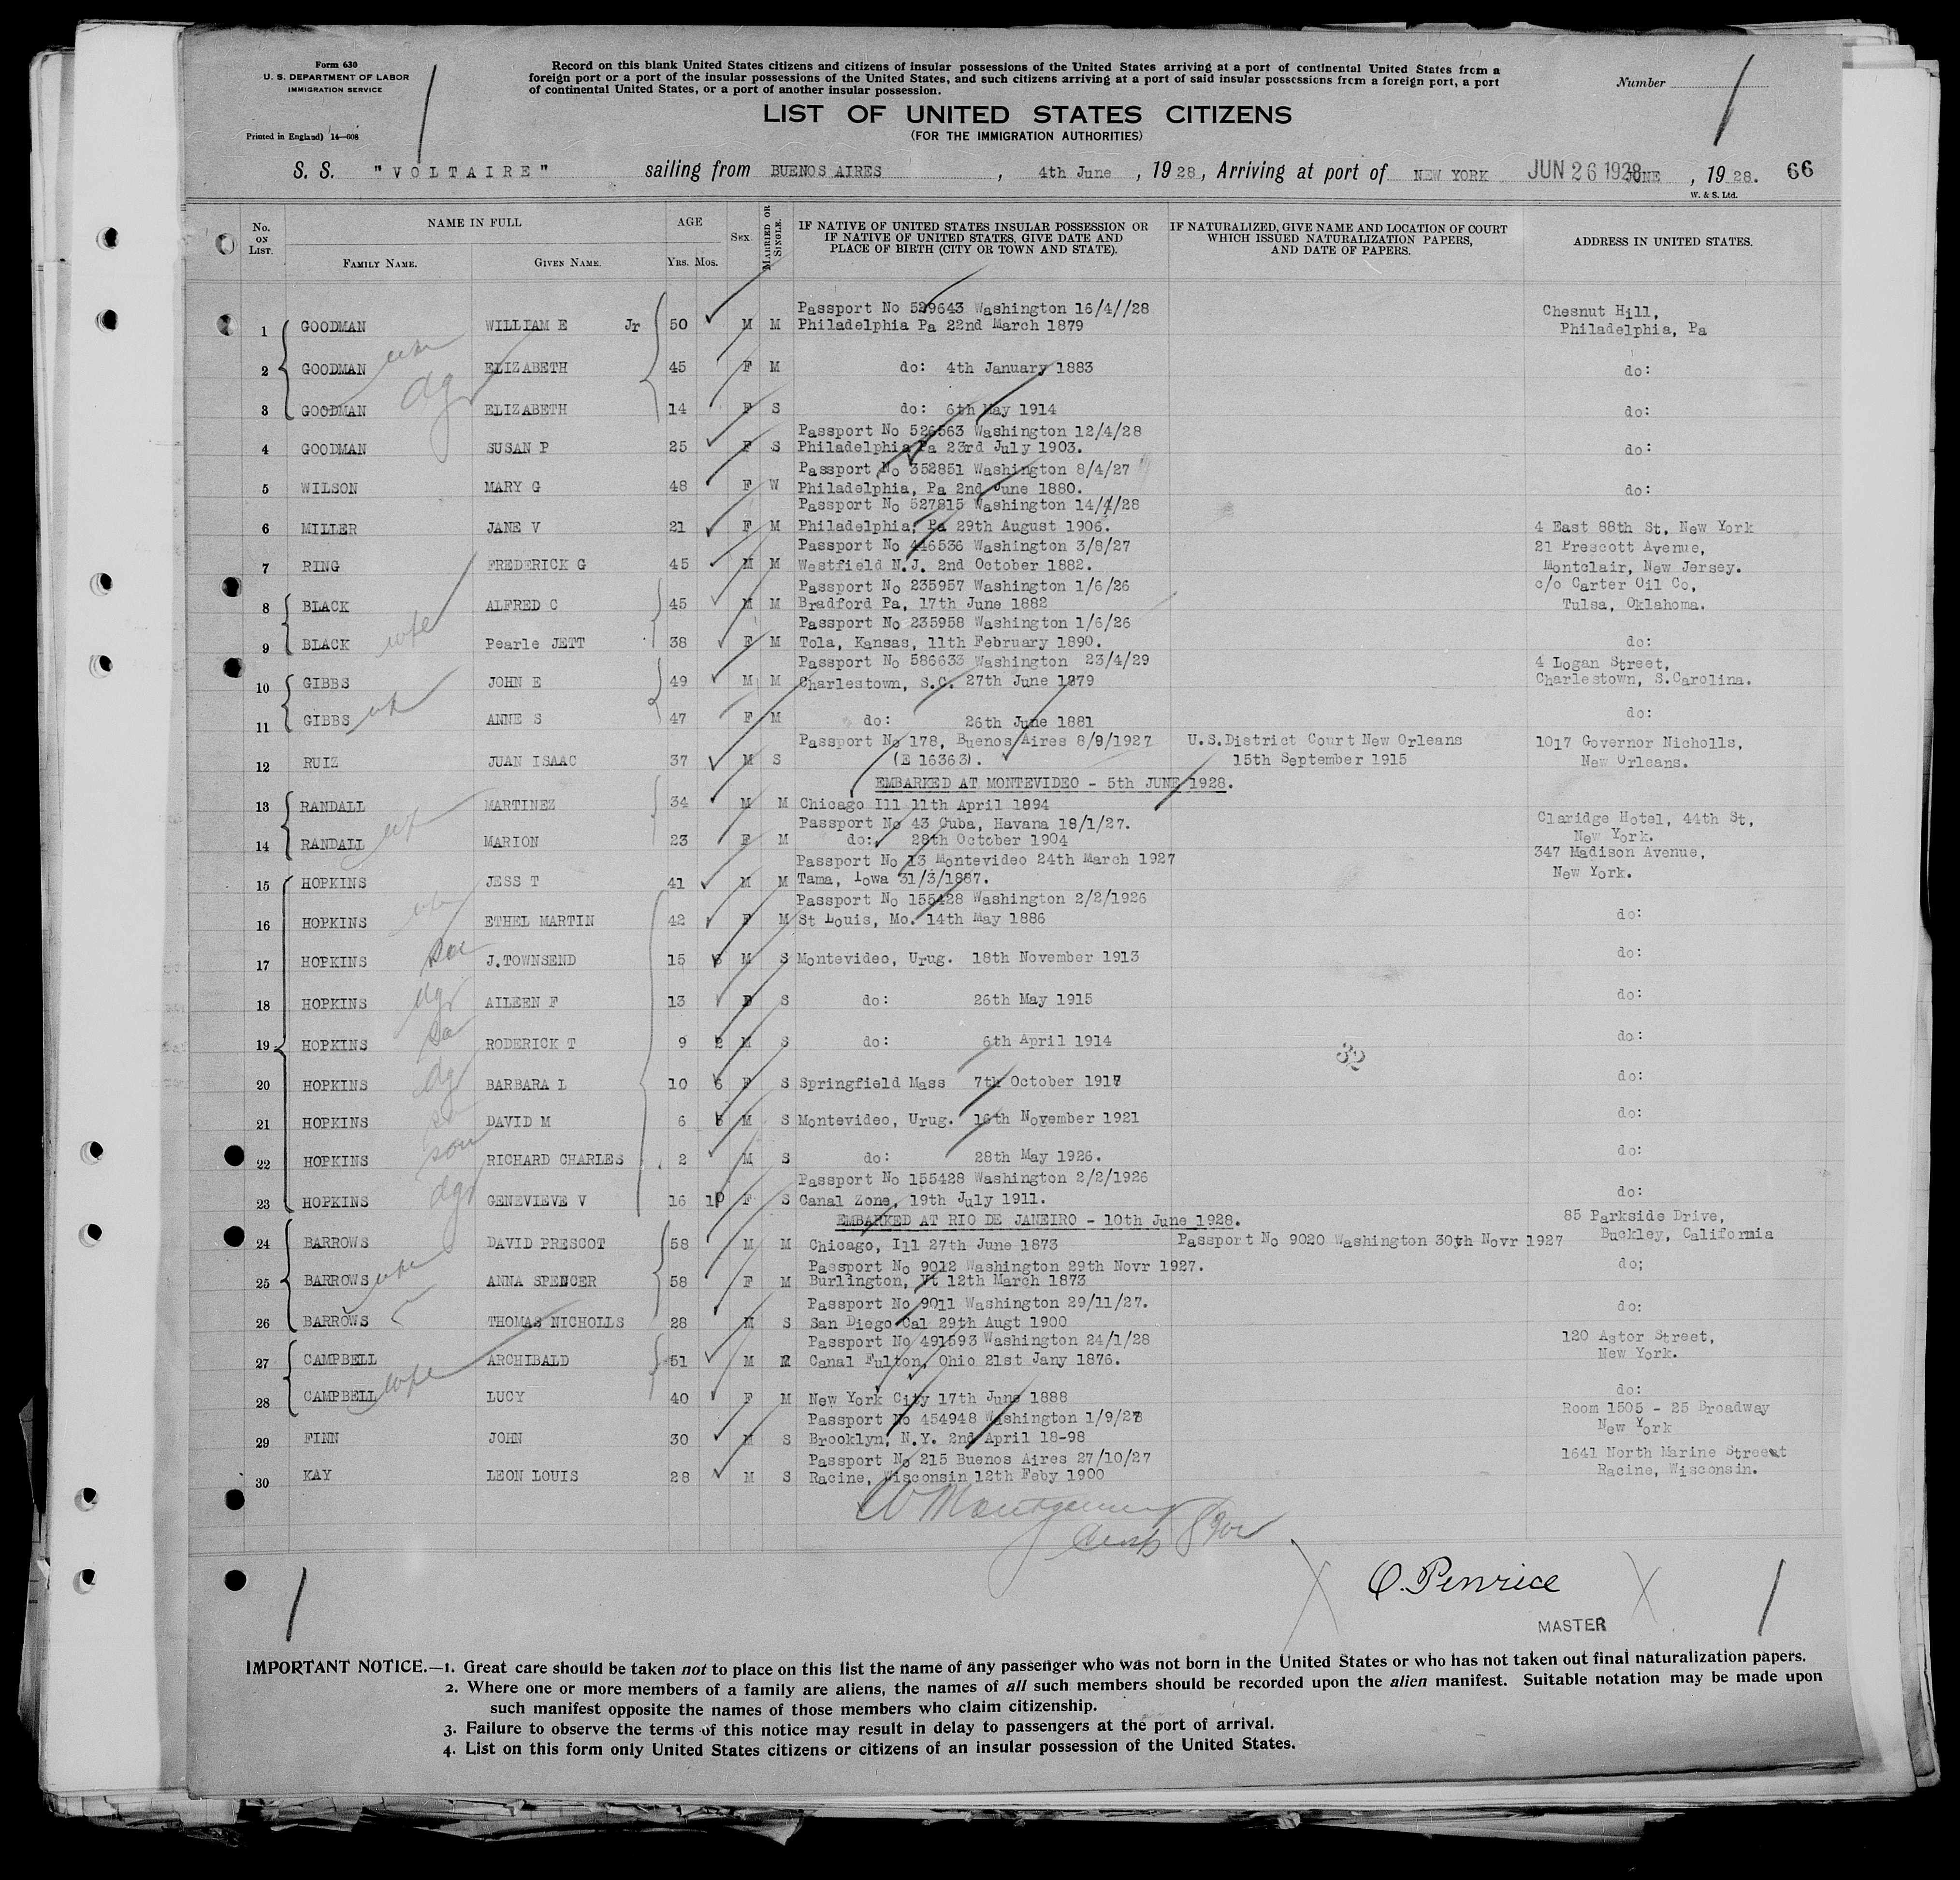 Form 630
U. S. DEPARTMENT OF LABOR
IMMIGRATION SERVICE
Printed in England) 14—608
Record on this blank United States citizens and citizens of insular possessions of the United States arriving at a port of continental United States from a
foreign port or a port of the insular possessions of the United States, and such citizens arriving at a port of said insular possessions from a foreign port, a port
of continental United States, or a port of another insular possession.
Number
LIST OF UNITED STATES CITIZENS
(FOR THE IMMIGRATION AUTHORITIES)
S. S. "VOLTAIRE" sailing from BUENOS AIRES, 4th June, 1928, Arriving at port of NEW YORK JUN 26 1928 JUNE, 1928. 66
W. & S. Ltd.
No. ON LIST. NAME IN FULL FAMILY NAME. GIVEN NAME. AGE YRS. MOS. SEX MARRIED OR SINGLE. IF NATIVE OF UNITED STATES INSULAR POSSESSION OR IF NATIVE OF UNITED STATES, GIVE DATE AND PLACE OF BIRTH (CITY OR TOWN AND STATE). IF NATURALIZED, GIVE NAME AND LOCATION OF COURT WHICH ISSUED NATURALIZATION PAPERS, AND DATE OF PAPERS. ADDRESS IN UNITED STATES.
Passport No 529643 Washington 16/4//28 Chesnut Hill,
1 GOODMAN WILLIAM E Jr 50 M M Philadelphia Pa 22nd March 1879 Philadelphia, Pa
2 GOODMAN ELIZABETH 45 F M do: 4th January 1883 do:
3 GOODMAN dgr ELIZABETH 14 F S do: 6th May 1914 do:
Passport No 526563 Washington 12/4/28
4 GOODMAN SUSAN P 25 F S Philadelphia Pa 23rd July 1903. do:
Passport No 352851 Washington 8/4/27
5 WILSON MARY G 48 F W Philadelphia, Pa 2nd June 1880. do:
Passport No 527815 Washington 14/4/28
6 MILLER JANE V 21 F M Philadelphia, Pa 29th August 1906. 4 East 88th St, New York
Passport No 446536 Washington 3/8/27 21 Prescott Avenue,
7 RING FREDERICK G 45 M M Westfield N.J. 2nd October 1882. Montclair, New Jersey.
Passport No 235957 Washington 1/6/26 c/o Carter Oil Co,
8 BLACK ALFRED C 45 M M Bradford Pa, 17th June 1882 Tulsa, Oklahoma.
Passport No 235958 Washington 1/6/26
9 BLACK wife Pearle JETT 38 F M Tola, Kansas, 11th February 1890. do:
Passport No 586633 Washington 23/4/29 4 Logan Street,
10 GIBBS JOHN E 49 M M Charlestown, S.C. 27th June 1879 Charlestown, S.Carolina.
11 GIBBS ANNE S 47 F M do: 26th June 1881 do:
Passport No 178, Buenos Aires 8/9/1927 U.S.District Court New Orleans 1017 Governor Nicholls,
12 RUIZ JUAN ISAAC 37 M S (E 16363). 15th September 1915 New Orleans.
EMBARKED AT MONTEVIDEO - 5th JUNE 1928.
13 RANDALL MARTINEZ 34 M M Chicago Ill 11th April 1894
Passport No 43 Cuba, Havana 18/1/27. Claridge Hotel, 44th St,
14 RANDALL MARION 23 F M do: 28th October 1904 New York.
Passport No 13 Montevideo 24th March 1927 347 Madison Avenue,
15 HOPKINS JESS T 41 M M Tama, Iowa 31/3/1887. New York.
Passport No 155428 Washington 2/2/1926
16 HOPKINS ETHEL MARTIN 42 F M St Louis, Mo. 14th May 1886 do:
17 HOPKINS J.TOWNSEND 15 M S Montevideo, Urug. 18th November 1913 do:
18 HOPKINS dgr AILEEN F 13 F S do: 26th May 1915 do:
19 HOPKINS RODERICK T 9 2 M S do: 6th April 1914 do:
20 HOPKINS dgr BARBARA L 10 6 F S Springfield Mass 7th October 1917 do:
21 HOPKINS DAVID M 6 M S Montevideo, Urug. 16th November 1921 do:
22 HOPKINS son RICHARD CHARLES 2 M S do: 28th May 1926. do:
Passport No 155428 Washington 2/2/1926
23 HOPKINS dgr GENEVIEVE V 16 10 F S Canal Zone, 19th July 1911. do:
EMBARKED AT RIO DE JANEIRO - 10th June 1928. 85 Parkside Drive,
24 BARROWS DAVID PRESCOT 58 M M Chicago, Ill 27th June 1873 Passport No 9020 Washington 30th Novr 1927 Buckley, California
Passport No 9012 Washington 29th Novr 1927.
25 BARROWS wife ANNA SPENCER 58 F M Burlington, Vt 12th March 1873 do;
Passport No 9011 Washington 29/11/27.
26 BARROWS THOMAS NICHOLLS 28 M S San Diego Cal 29th Augt 1900 do:
Passport No 491593 Washington 24/1/28 120 Astor Street,
27 CAMPBELL ARCHIBALD 51 M M Canal Fulton, Ohio 21st Jany 1876. New York.
28 CAMPBELL wife LUCY 40 F M New York City 17th June 1888 do:
Passport No 454948 Washington 1/9/28 Room 1505 - 25 Broadway
29 FINN JOHN 30 M S Brooklyn, N.Y. 2nd April 18-98 New York
Passport No 215 Buenos Aires 27/10/27 1641 North Marine Street
30 KAY LEON LOUIS 28 M S Racine, Wisconsin 12th Feby 1900 Racine, Wisconsin.
W Montgomery
C. Penrice
MASTER
IMPORTANT NOTICE.—1. Great care should be taken not to place on this list the name of any passenger who was not born in the United States or who has not taken out final naturalization papers.
2. Where one or more members of a family are aliens, the names of all such members should be recorded upon the alien manifest. Suitable notation may be made upon
such manifest opposite the names of those members who claim citizenship.
3. Failure to observe the terms of this notice may result in delay to passengers at the port of arrival.
4. List on this form only United States citizens or citizens of an insular possession of the United States.